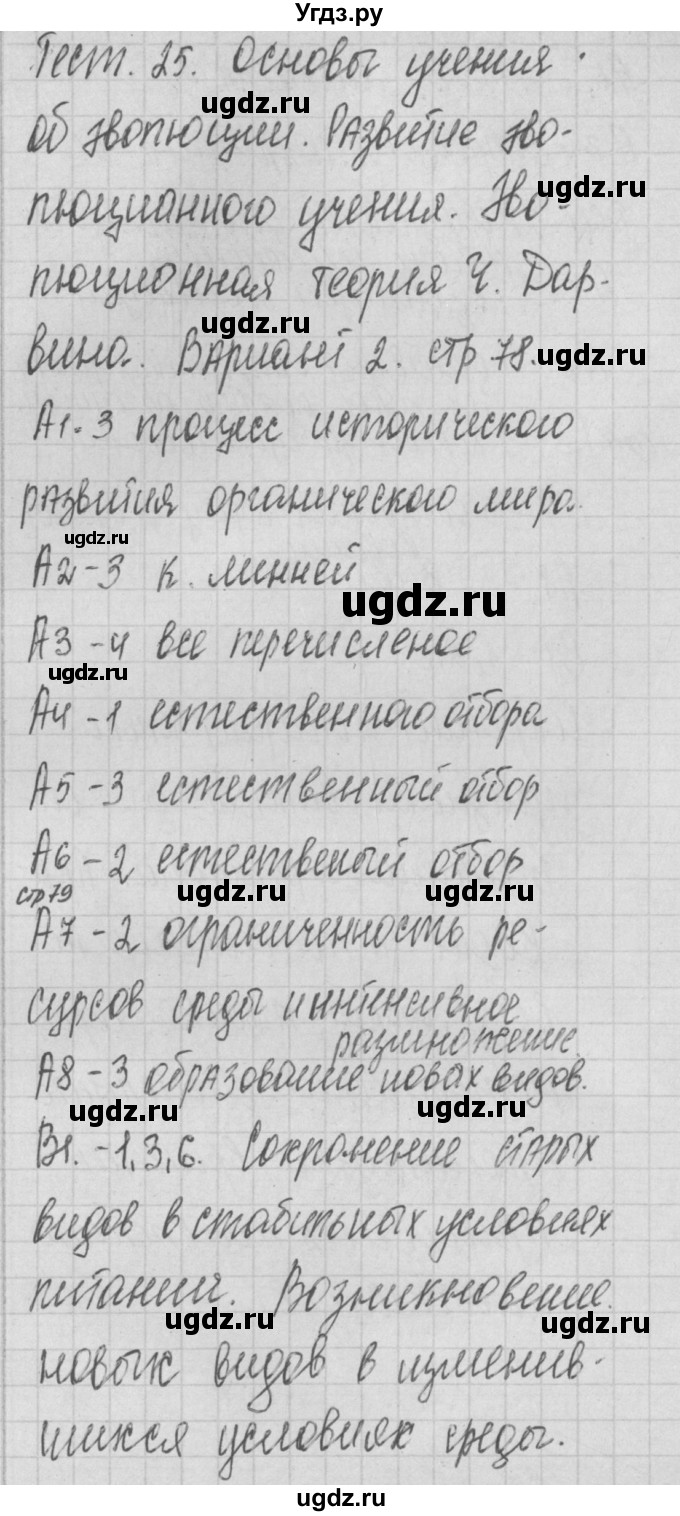 Угдз.ру
Тест. 25. Основы учения
ugdz.ru
об эволюции. Развитие эво-
ugdz.ru
люцианного учения. Эво-
люционная теория Ч. Дар-
ugdz.ru
вина. Вариант 2. стр 78.
ugdz.ru
А1-3 процесс исторического
развития органического мира.
ugdz.ru
А2-3 К. Линней
ugdz.ru
А3-4 все перечисленое
ugdz.ru
А4-1 естественного отбора
А5-3 естественный отбор
А6-2 естественый отбор
стр79
ugdz.ru ugdz.ru
А7-2 ограниченность ре-
сурсов среды и интенсивное
размножение
А8-3 образование новах видов.
ugdz.ru ugdz.ru
В1.-1,3,6. Сохронение старых
видов в стабильных условиях
питании. Возникновение
ugdz.ru ugdz.ru
новых видов в изменив-
шихся условиях среды.
ugdz.ru